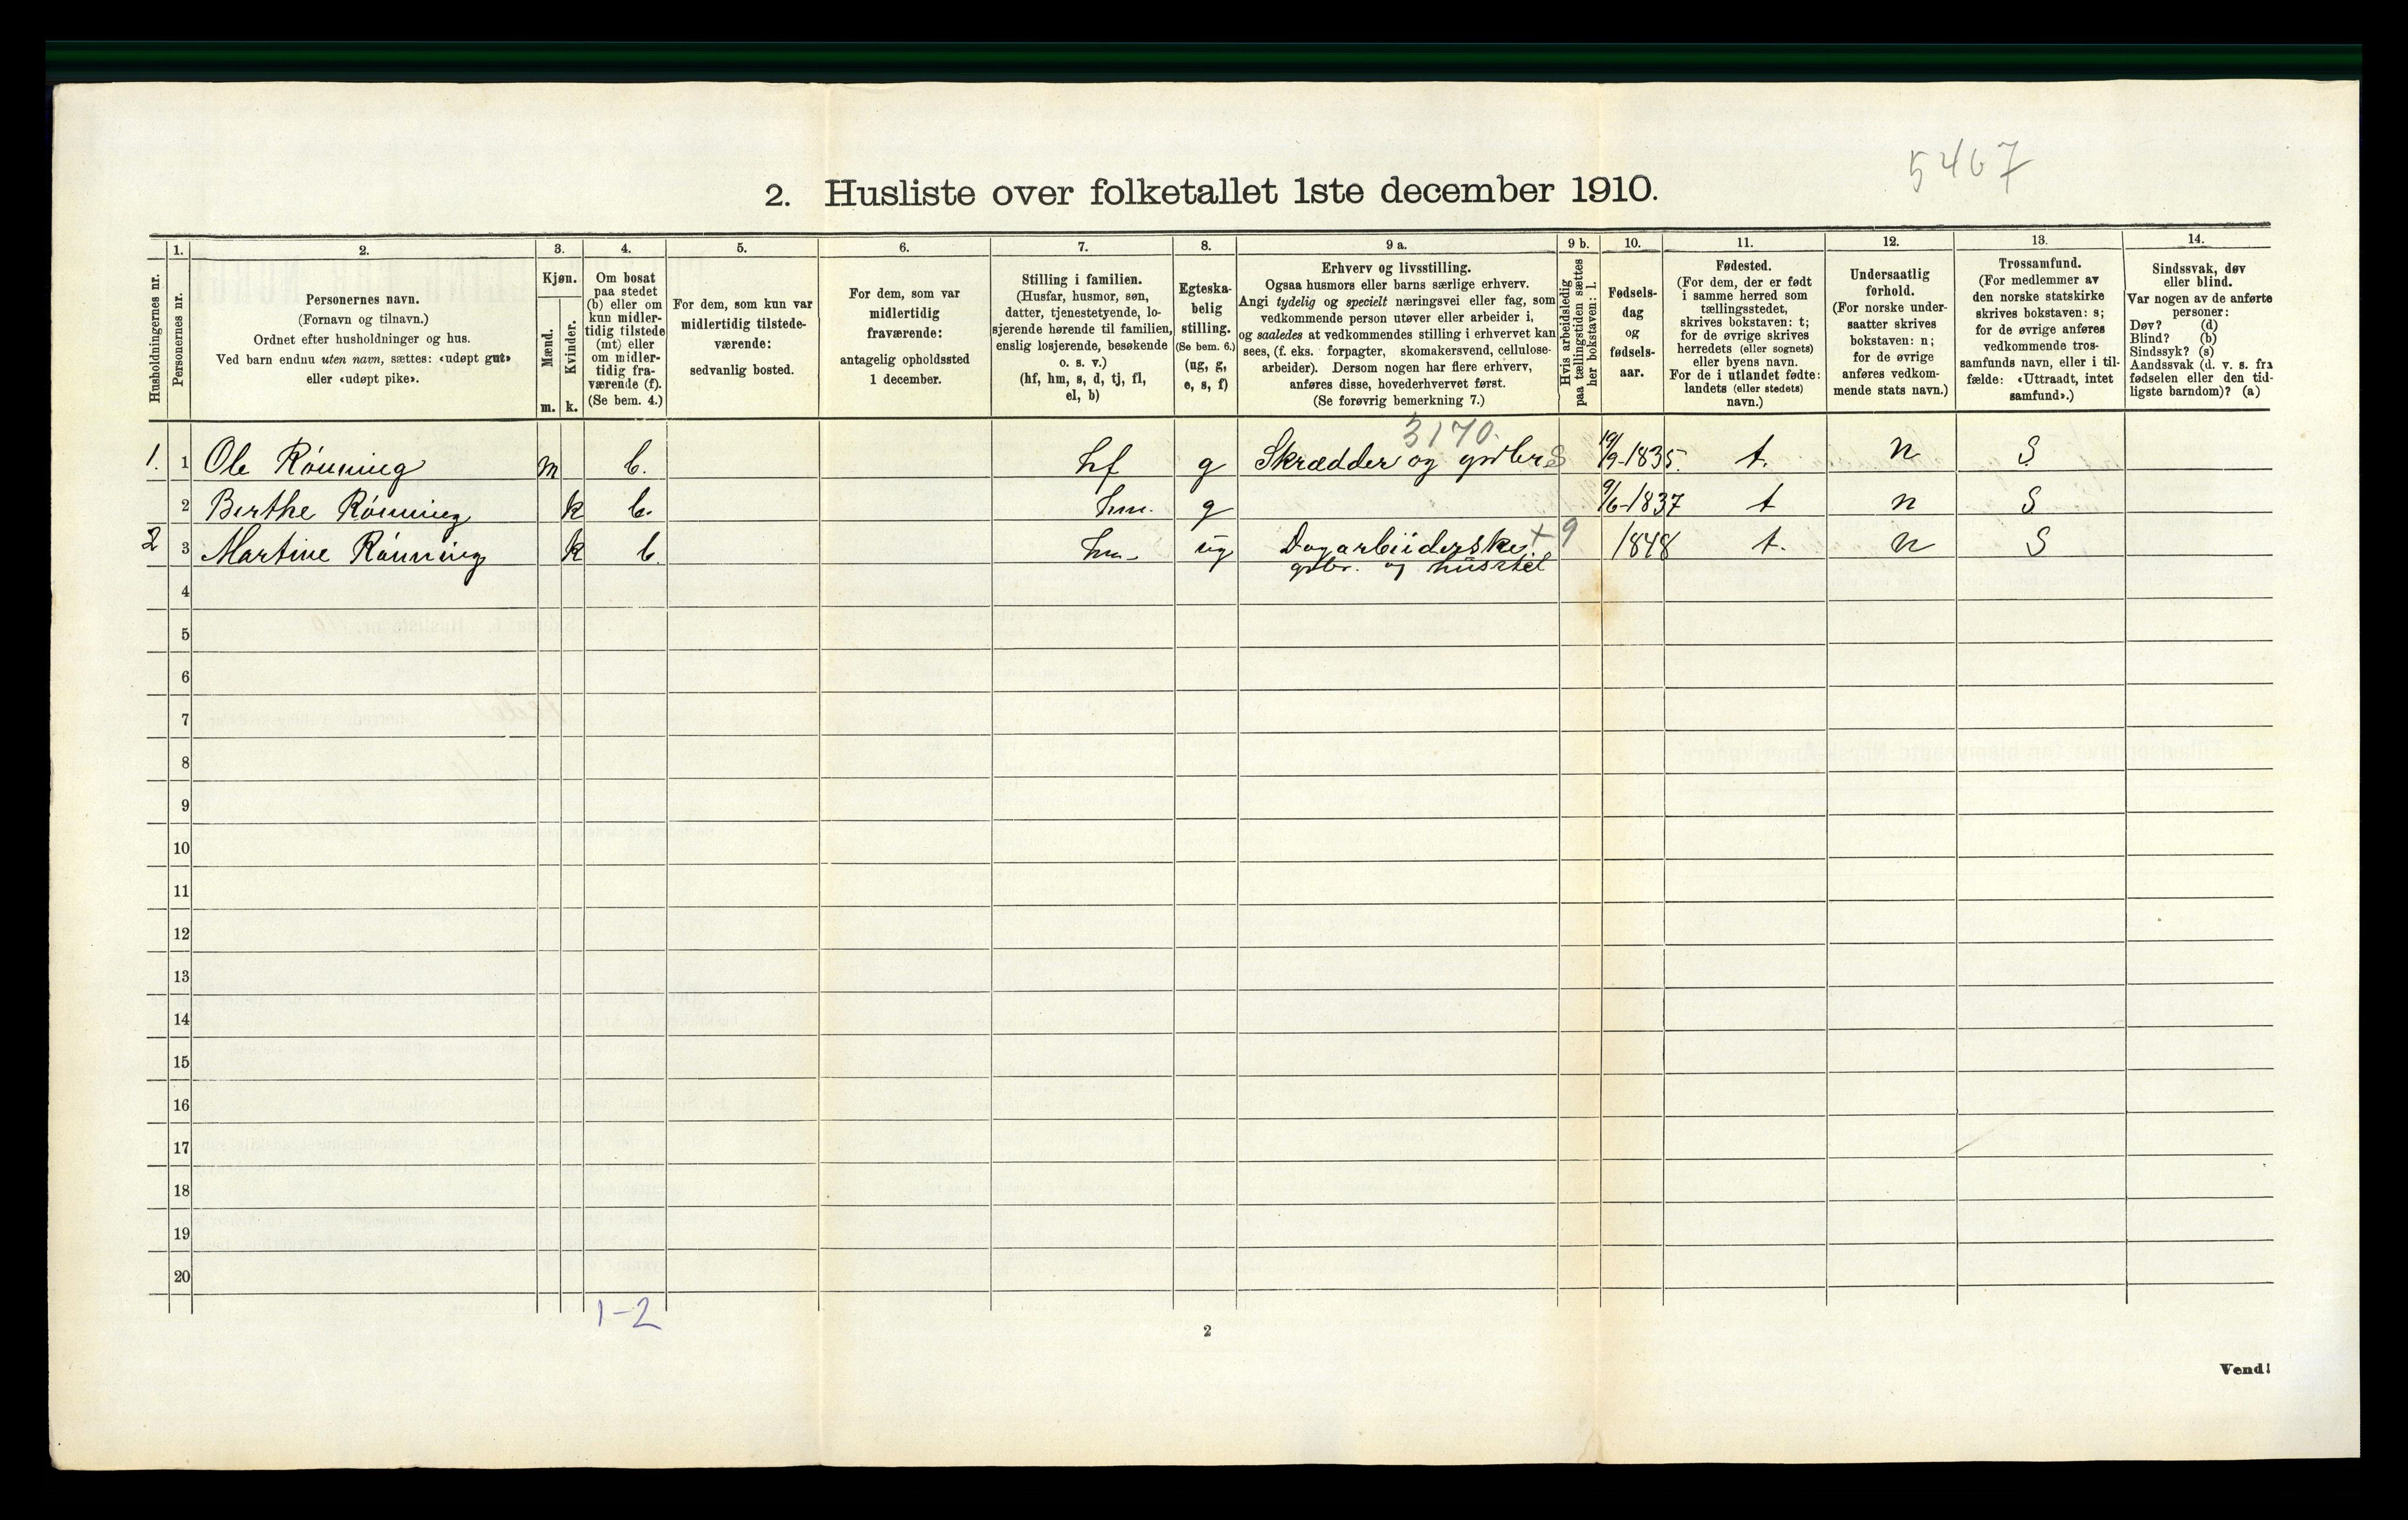 5467
2. Husliste over folketallet 1ste december 1910.
Husholdningernes nr.
1.
Personernes nr.
2.
Personernes navn.
(Fornavn og tilnavn.)
Ordnet efter husholdninger og hus.
Ved barn endnu uten navn, sættes: «udøpt gut»
eller «udøpt pike».
3.
Kjøn.
Mænd.
Kvinder.
m. k.
4.
Om bosat
paa stedet
(b) eller om
kun midler-
tidig tilstede
(mt) eller
om midler-
tidig fra-
værende (f).
(Se bem. 4.)
5.
For dem, som kun var
midlertidig tilstede-
værende:
sedvanlig bosted.
6.
For dem, som var
midlertidig
fraværende:
antagelig opholdssted
1 december.
7.
Stilling i familien.
(Husfar, husmor, søn,
datter, tjenestetyende, lo-
sjerende hørende til familien,
enslig losjerende, besøkende
o. s. v.)
(hf, hm, s, d, tj, fl,
el, b)
8.
Egteska-
belig
stilling.
(Se bem. 6.)
(ug, g,
e, s, f)
9 a.
Erhverv og livsstilling.
Ogsaa husmors eller barns særlige erhverv.
Angi tydelig og specielt næringsvei eller fag, som
vedkommende person utøver eller arbeider i,
og saaledes at vedkommendes stilling i erhvervet kan
sees, (f. eks. forpagter, skomakersvend, cellulose-
arbeider). Dersom nogen har flere erhverv,
anføres disse, hovederhvervet først.
(Se forøvrig bemerkning 7.)
9 b.
Hvis arbeidsledig
paa tællingstiden sættes
her bokstaven: l.
10.
Fødsels-
dag
og
fødsels-
aar.
11.
Fødested.
(For dem, der er født
i samme herred som
tællingsstedet,
skrives bokstaven: t;
for de øvrige skrives
herredets (eller sognets)
eller byens navn.
For de i utlandet fødte:
landets (eller stedets)
navn.)
12.
Undersaatlig
forhold.
(For norske under-
saatter skrives
bokstaven: n;
for de øvrige
anføres vedkom-
mende stats navn.)
13.
Trossamfund.
(For medlemmer av
den norske statskirke
skrives bokstaven: s;
for de øvrige anføres
vedkommende tros-
samfunds navn, eller i til-
fælde: «Uttraadt, intet
samfund».)
14.
Sindssvak, døv
eller blind.
Var nogen av de anførte
personer:
Døv? (d)
Blind? (b)
Sindssyk? (s)
Aandssvak (d. v. s. fra
fødselen eller den tid-
ligste barndom)? (a)
3170.
1. 1 Ole Rønning m b. hf g Skrædder og grdbr S 19/9-1835. t. n S
2 Berthe Rønning k b. hm. g 9/6-1837 t n S
2 3 Martine Rønning k b. hm - ug Dagarbeiderske + 9 1848 t. n S
grbr. og husstel
4
5
6
7
8
9
10
11
12
13
14
15
16
17
18
19
20
1-2
2
Vend!